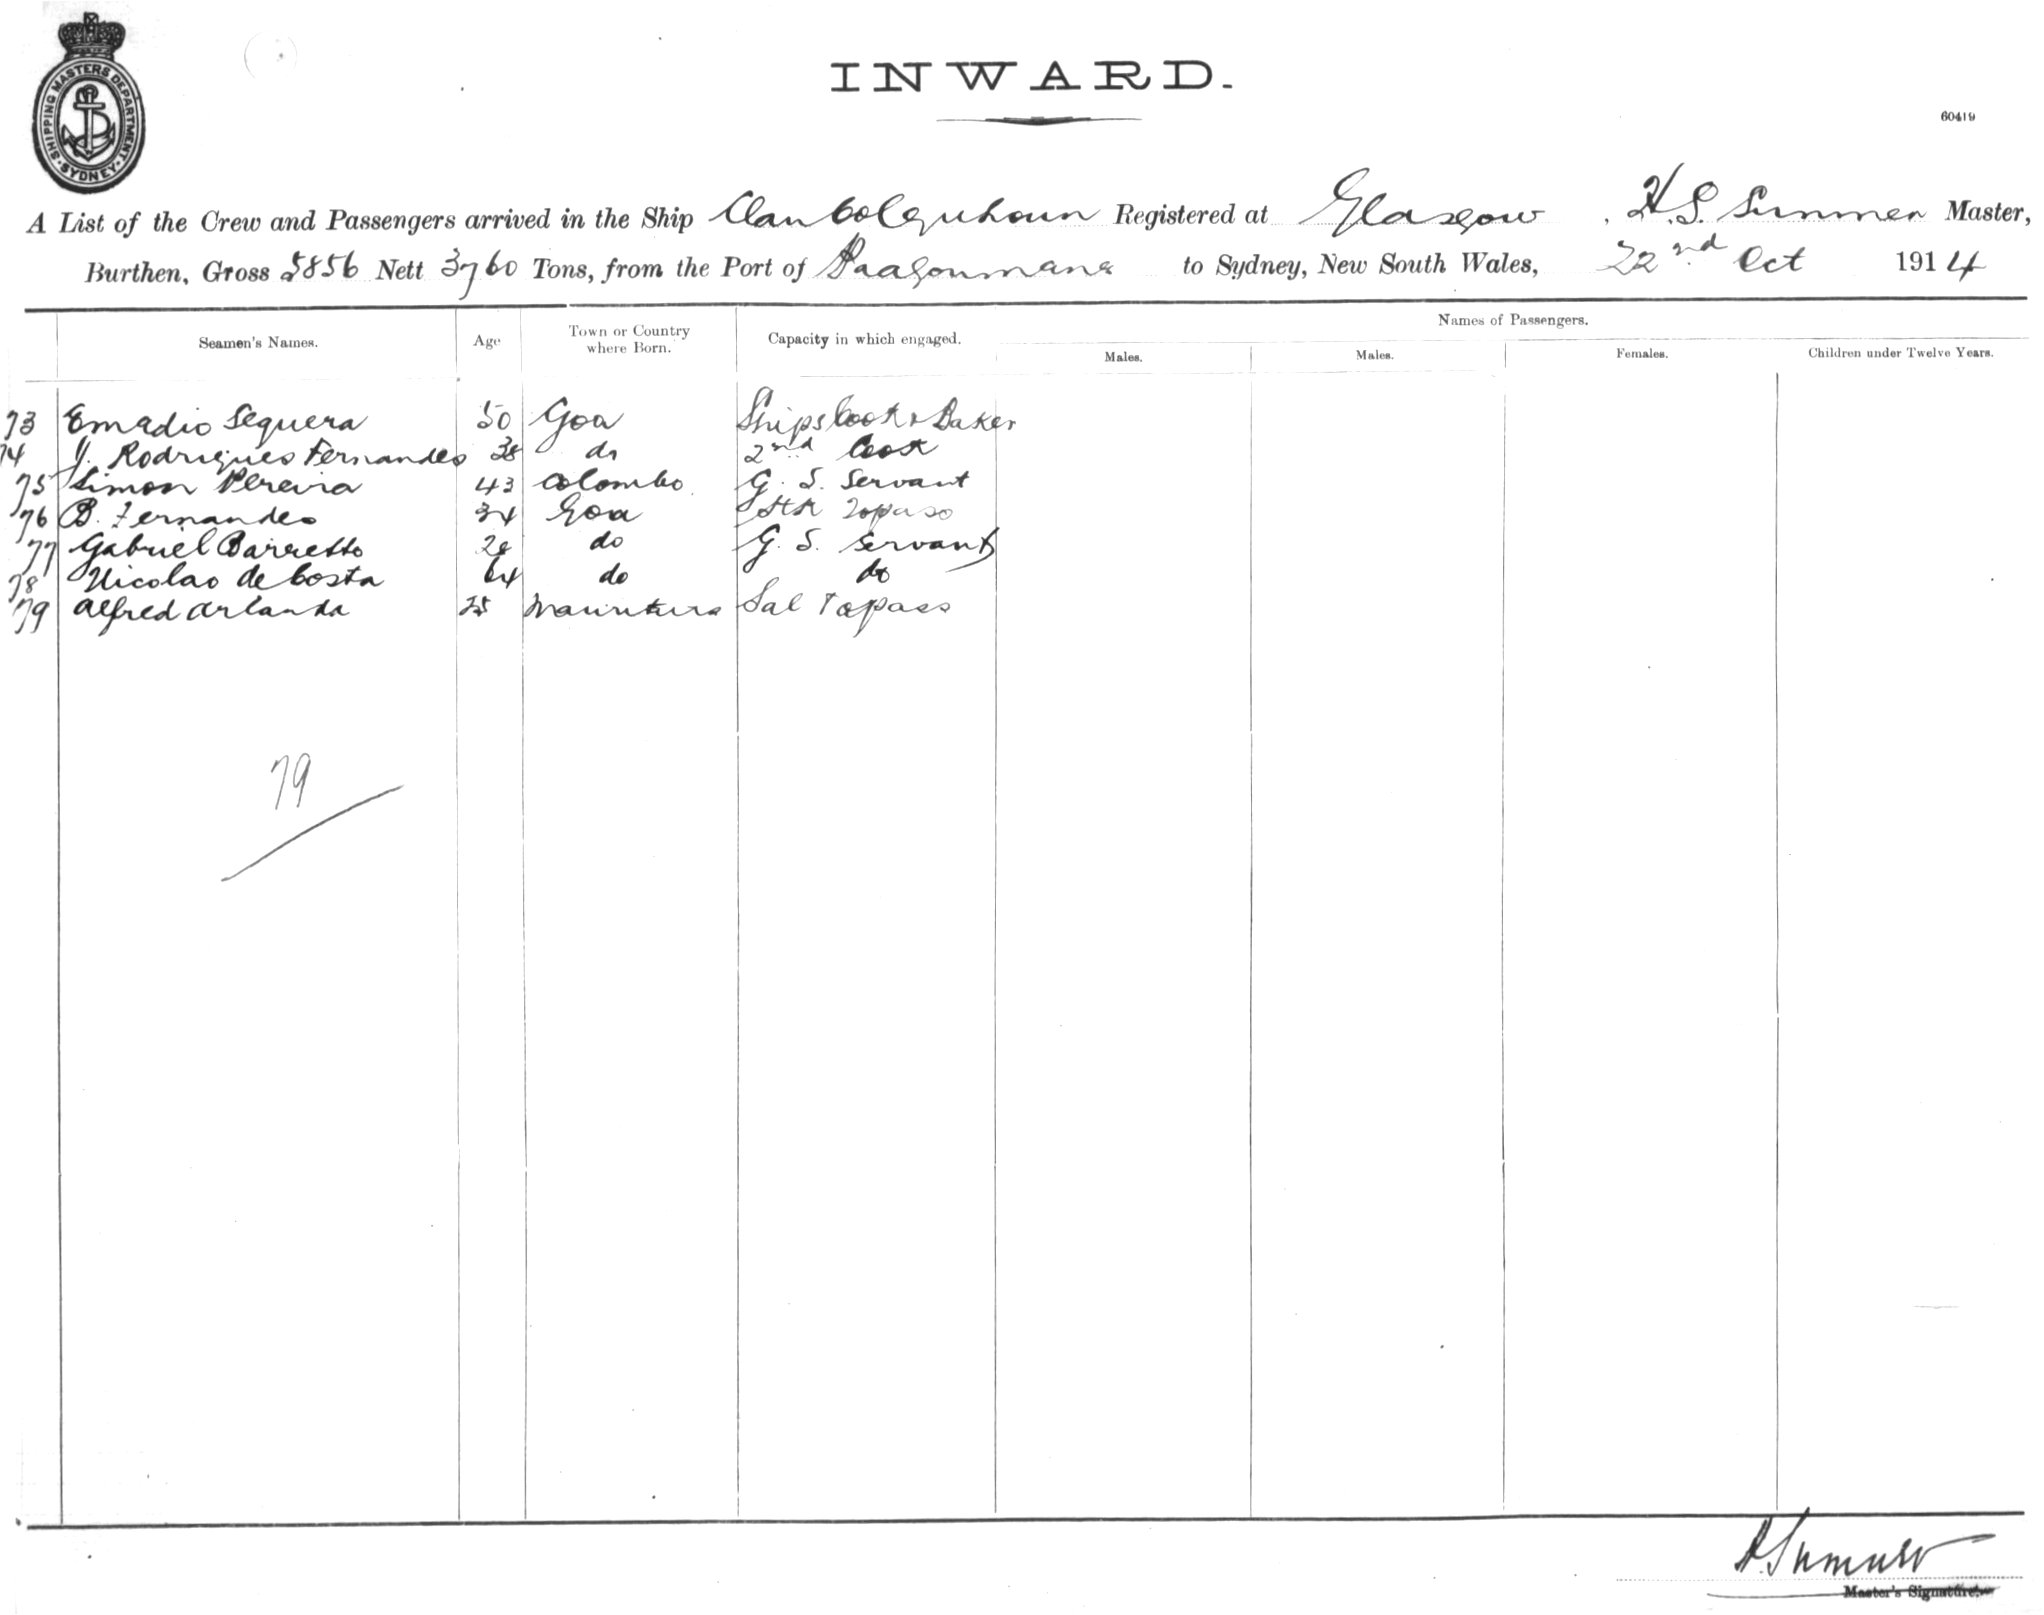 SHIPPING MASTERS DEPARTMENT · SYDNEY ·
INWARD.
60419
A List of the Crew and Passengers arrived in the Ship Clan Colquhoun Registered at Glasgow , H. S. Sumner Master,
Burthen, Gross 5856 Nett 3760 Tons, from the Port of Paagoumene to Sydney, New South Wales, 22nd Oct 1914
Seamen's Names. Age Town or Country where Born. Capacity in which engaged. Names of Passengers.
Males. Males. Females. Children under Twelve Years.
73 Emadio Sequera 50 Goa Ships Cook & Baker
74 J. Rodrigues Fernandes 38 do 2nd Cook
75 Simon Pereira 43 Colombo G. S. Servant
76 B. Fernandes 34 Goa Topass
77 Gabriel Barretto do G. S. Servant
78 Nicolao de Costa 64 do do
79 Alfred Arlanda 25 Mauritius Sal Topass
79
H. Sumner
Master's Signature.